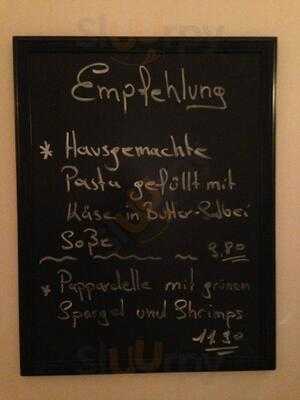 Empfehlung
* Hausgemachte
Pasta gefüllt mit
Käse in Butter-Salbei
Soße 9.80
* Pappardelle mit grünen
Spargel und Shrimps
11.90